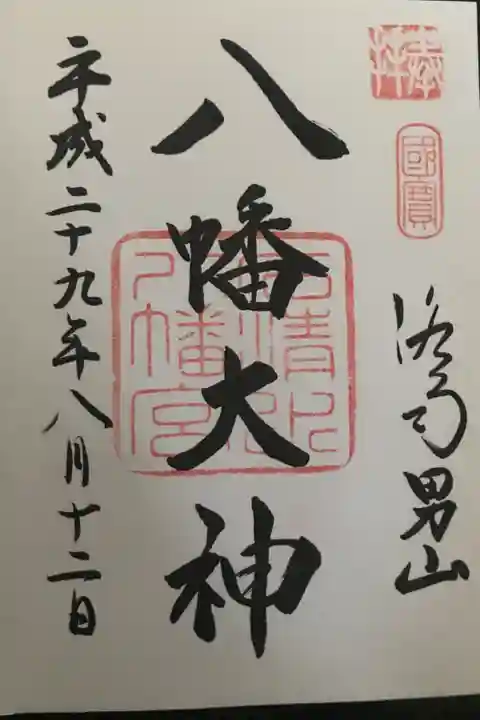 奉拝
國寳
洛南男山
八幡大神
石清水八幡宮
平成二十九年八月十二日